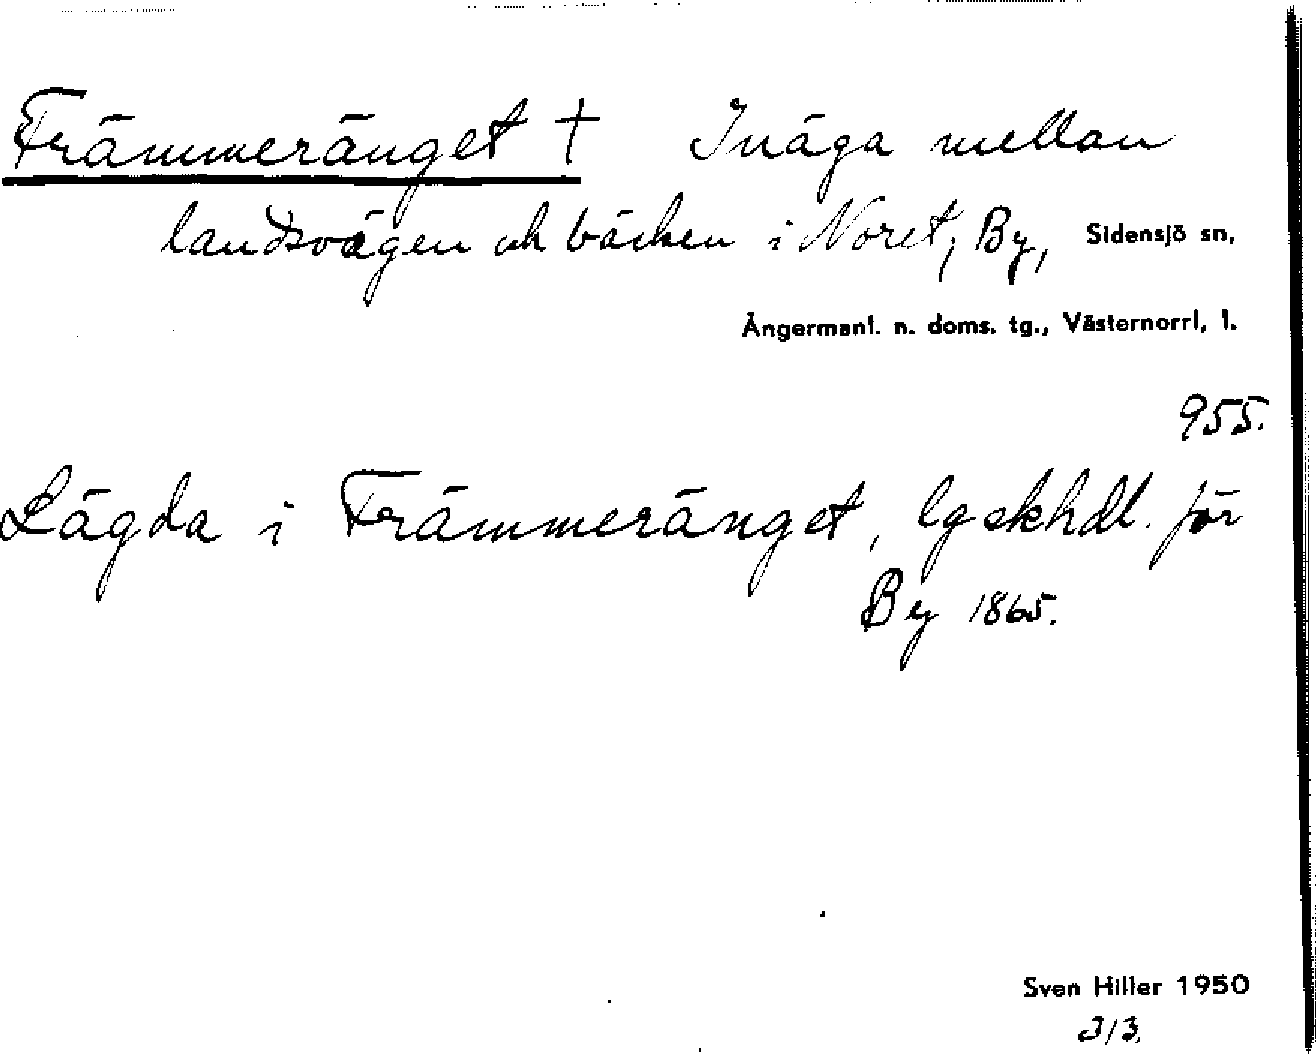 Främmeränget † Inäga mellan
landsvägen och bäcken i Noret, By, Sidensjö sn,
Ångermanl. n. doms. tg., Västernorrl, l.
955.
Lägda i Främmeränget, lgskhdl. för
By 1865.
Sven Hiller 1950
3/3.